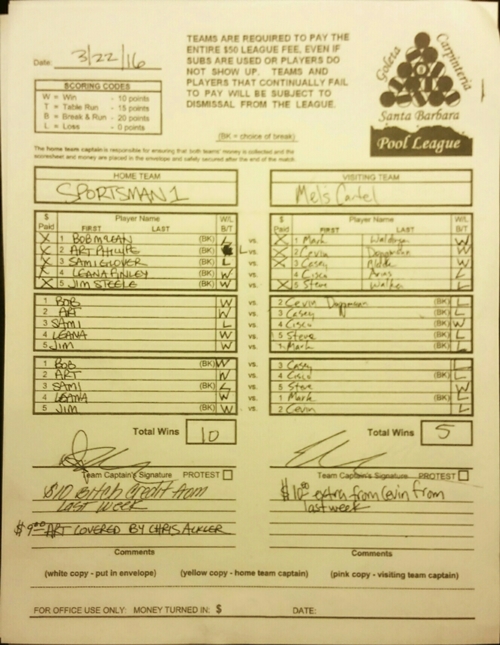 Date: 3/22/16
TEAMS ARE REQUIRED TO PAY THE
ENTIRE $50 LEAGUE FEE, EVEN IF
SUBS ARE USED OR PLAYERS DO
NOT SHOW UP. TEAMS AND
PLAYERS THAT CONTINUALLY FAIL
TO PAY WILL BE SUBJECT TO
DISMISSAL FROM THE LEAGUE.
Goleta
Carpinteria
Santa Barbara
Pool League
SCORING CODES
W = Win - 10 points
T = Table Run - 15 points
B = Break & Run - 20 points
L = Loss - 0 points
(BK = choice of break)
The home team captain is responsible for ensuring that both teams' money is collected and the
scoresheet and money are placed in the envelope and safely secured after the end of the match.
HOME TEAM
SPORTSMAN 1
VISITING TEAM
Mel's Cartel
$ Paid Player Name FIRST LAST W/L B/T
X 1 BOB MCLEAN (BK) L vs. X 1 Mark W
X 2 ART (BK) L vs. X 2 Cevin Dopmann W
X 3 SAMI GLOVER (BK) L vs. X 3 Casey W
X 4 LEANA FINLEY (BK) W vs. 4 Cisco Arias L
X 5 JIM STEELE (BK) W vs. X 5 Steve Walker L
1 BOB W vs. 2 Cevin Dopmann (BK) L
2 ART W vs. 3 Casey (BK) L
3 SAMI L vs. 4 Cisco (BK) W
4 LEANA W vs. 5 Steve (BK) L
5 JIM W vs. 1 Mark (BK) L
1 BOB (BK) W vs. 3 Casey L
2 ART W vs. 4 Cisco (BK) L
3 SAMI (BK) L vs. 5 Steve W
4 LEANA W vs. 1 Mark (BK) L
5 JIM (BK) W vs. 2 Cevin L
Total Wins 10
Total Wins 5
Team Captain's Signature PROTEST
Team Captain's Signature PROTEST
$10 Bitch Credit from
LAST WEEK
$9.00 ART COVERED BY CHRIS ACKLER
$10.00 extra from Cevin from
last week
Comments
Comments
(white copy - put in envelope) (yellow copy - home team captain) (pink copy - visiting team captain)
FOR OFFICE USE ONLY: MONEY TURNED IN: $ DATE: